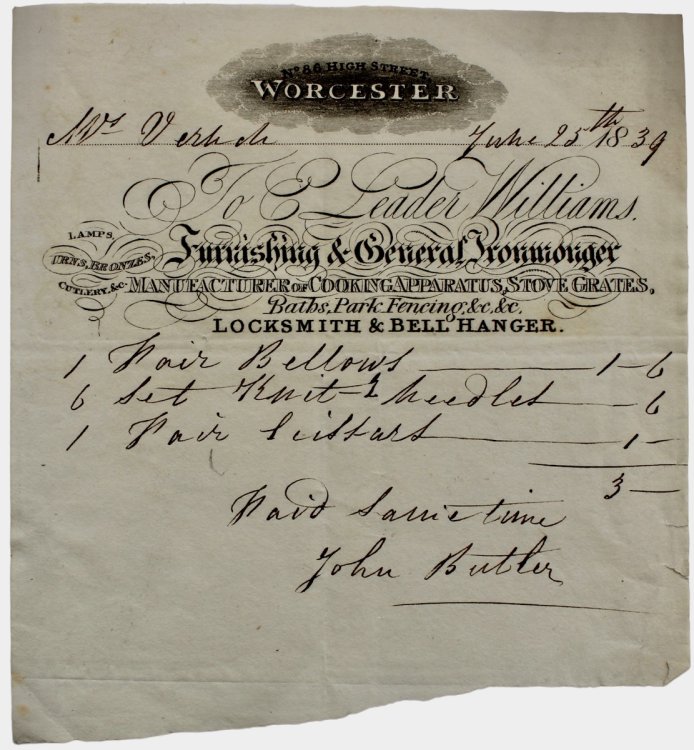 No. 88 HIGH STREET,
WORCESTER
June 25th 1839
To E Leader Williams.
LAMPS,
URNS, BRONZES,
CUTLERY, &c.
Furnishing & General Ironmonger
MANUFACTURER OF COOKING APPARATUS, STOVE GRATES,
Baths, Park Fencing, &c, &c,
LOCKSMITH & BELL HANGER.
1 Pair Bellows 1-6
6 Set Knitg Needles -6
1 Pair Scissars 1-
3-
Paid Same time
John Butler